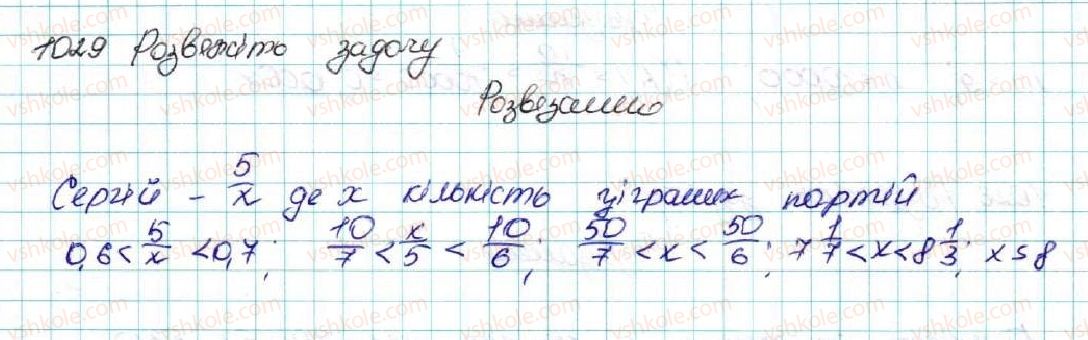 1029 Розвяжіть задачу
Розвезанню
Сергій - 5/x де x кількість зіграних партій
0,6 < 5/x < 0,7; 10/7 < x/5 < 10/6; 50/7 < x < 50/6; 7 1/7 < x < 8 1/3; x = 8
vshkole.com